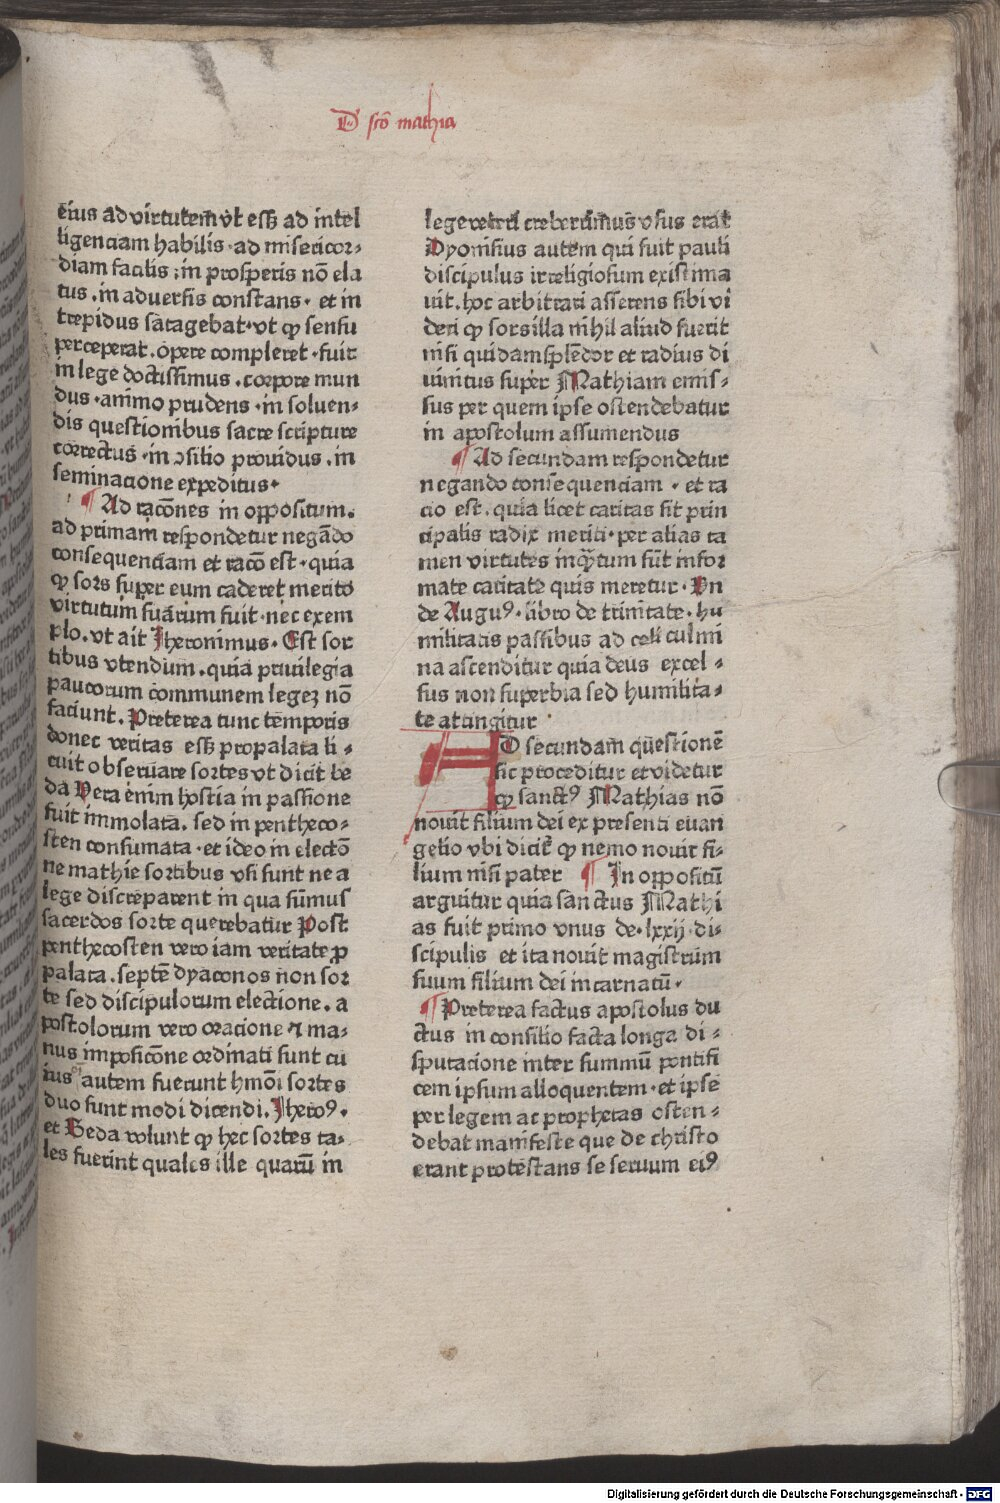 D' sctō mathia
eius ad virtutem̄ vt̄ esſȝ ad intel
ligenciam habilis · ad misericor⸗
diam facilis ; in prosperis nō ela
tus . in aduersis constans · et in
trepidus satagebat · vt ꝙ sensu
perceperat . opere compleret · fuit
in lege doctissimus . corpore mun
dus · animo prudens · in soluen⸗
dis questionibus sacre scripture
correctus · in ɔsilio prouidus . in
seminacione expeditus ·
¶ Ad racōnes in oppositum .
ad primam respondetur negādo
consequenciam et racō est · quia
ꝙ sors super eum caderet merito
virtutum suarum fuit · nec exem
plo . vt ait Jheronimus · Est sor
tibus vtendum . quia priuilegia
paucorum communem legeʒ nō
faciunt . Preterea tunc temporis
donec veritas esſȝ propalata li⸗
cuit obseruare sortes vt dicit be
da Vera enim hostia in passione
fuit immolata . sed in pentheco⸗
sten consumata · et ideo in electō
ne mathie sortibus vsi sunt ne a
lege discreparent in qua sūmus
sacerdos sorte querebatur Post
penthecosten vero iam veritate ꝓ
palata . septē dyaconos non sor
te sed discipulorum electione . a
postolorum vero oracione ⁊ ma⸗
nus imposicōne ordinati sunt cu
ius autem fuerunt hmōi sortes
duo sunt modi dicendi . Jheroꝰ .
et Beda volunt ꝙ hec sortes ta⸗
les fuerint quales ille quarū in
lege veteri creberrimus vsus erat
Dyonisius autem qui fuit pauli
discipulus irreligiosum existima
uit . hoc arbitrari asserens sibi vi
deri ꝙ sors illa nihil aliud fuerit
nisi quidam splēdor et radius di
uinitus super Mathiam emis⸗
sus per quem ipse ostendebatur
in apostolum assumendus
¶ Ad secundam respondetur
negando consequenciam · et ra
cio est . quia licet caritas sit prin
cipalis radix meriti · per alias ta
men virtutes inqͣtum sūt infor
mate caritate quis meretur · Vn
de Auguꝰ · libro de trinitate · hu
militatis passibus ad celi culmi
na ascenditur quia deus excel⸗
sus non superbia sed humilita⸗
te attingitur ·
AD secundam questionē
sic proceditur et videtur
ꝙ sanctꝰ Mathias nō
nouit filium dei ex presenti euan
gelio vbi dicit̄ ꝙ nemo nouit fi⸗
lium nisi pater ¶ In oppositū
arguitur quia sanctus Mathi
as fuit primo vnus de · lxxij · di⸗
scipulis et ita nouit magistrum
suum filium dei incarnatū ·
¶ Preterea factus apostolus du
ctus in consilio facta longa di⸗
sputacione inter summū pontifi
cem ipsum alloquentem · et ipse
per legem ac prophetas osten⸗
debat manifeste que de christo
erant protestans se seruum eiꝰ
Digitalisierung gefördert durch die Deutsche Forschungsgemeinschaft - DFG